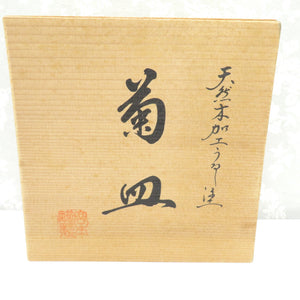 天然木加工うるし塗
菊皿